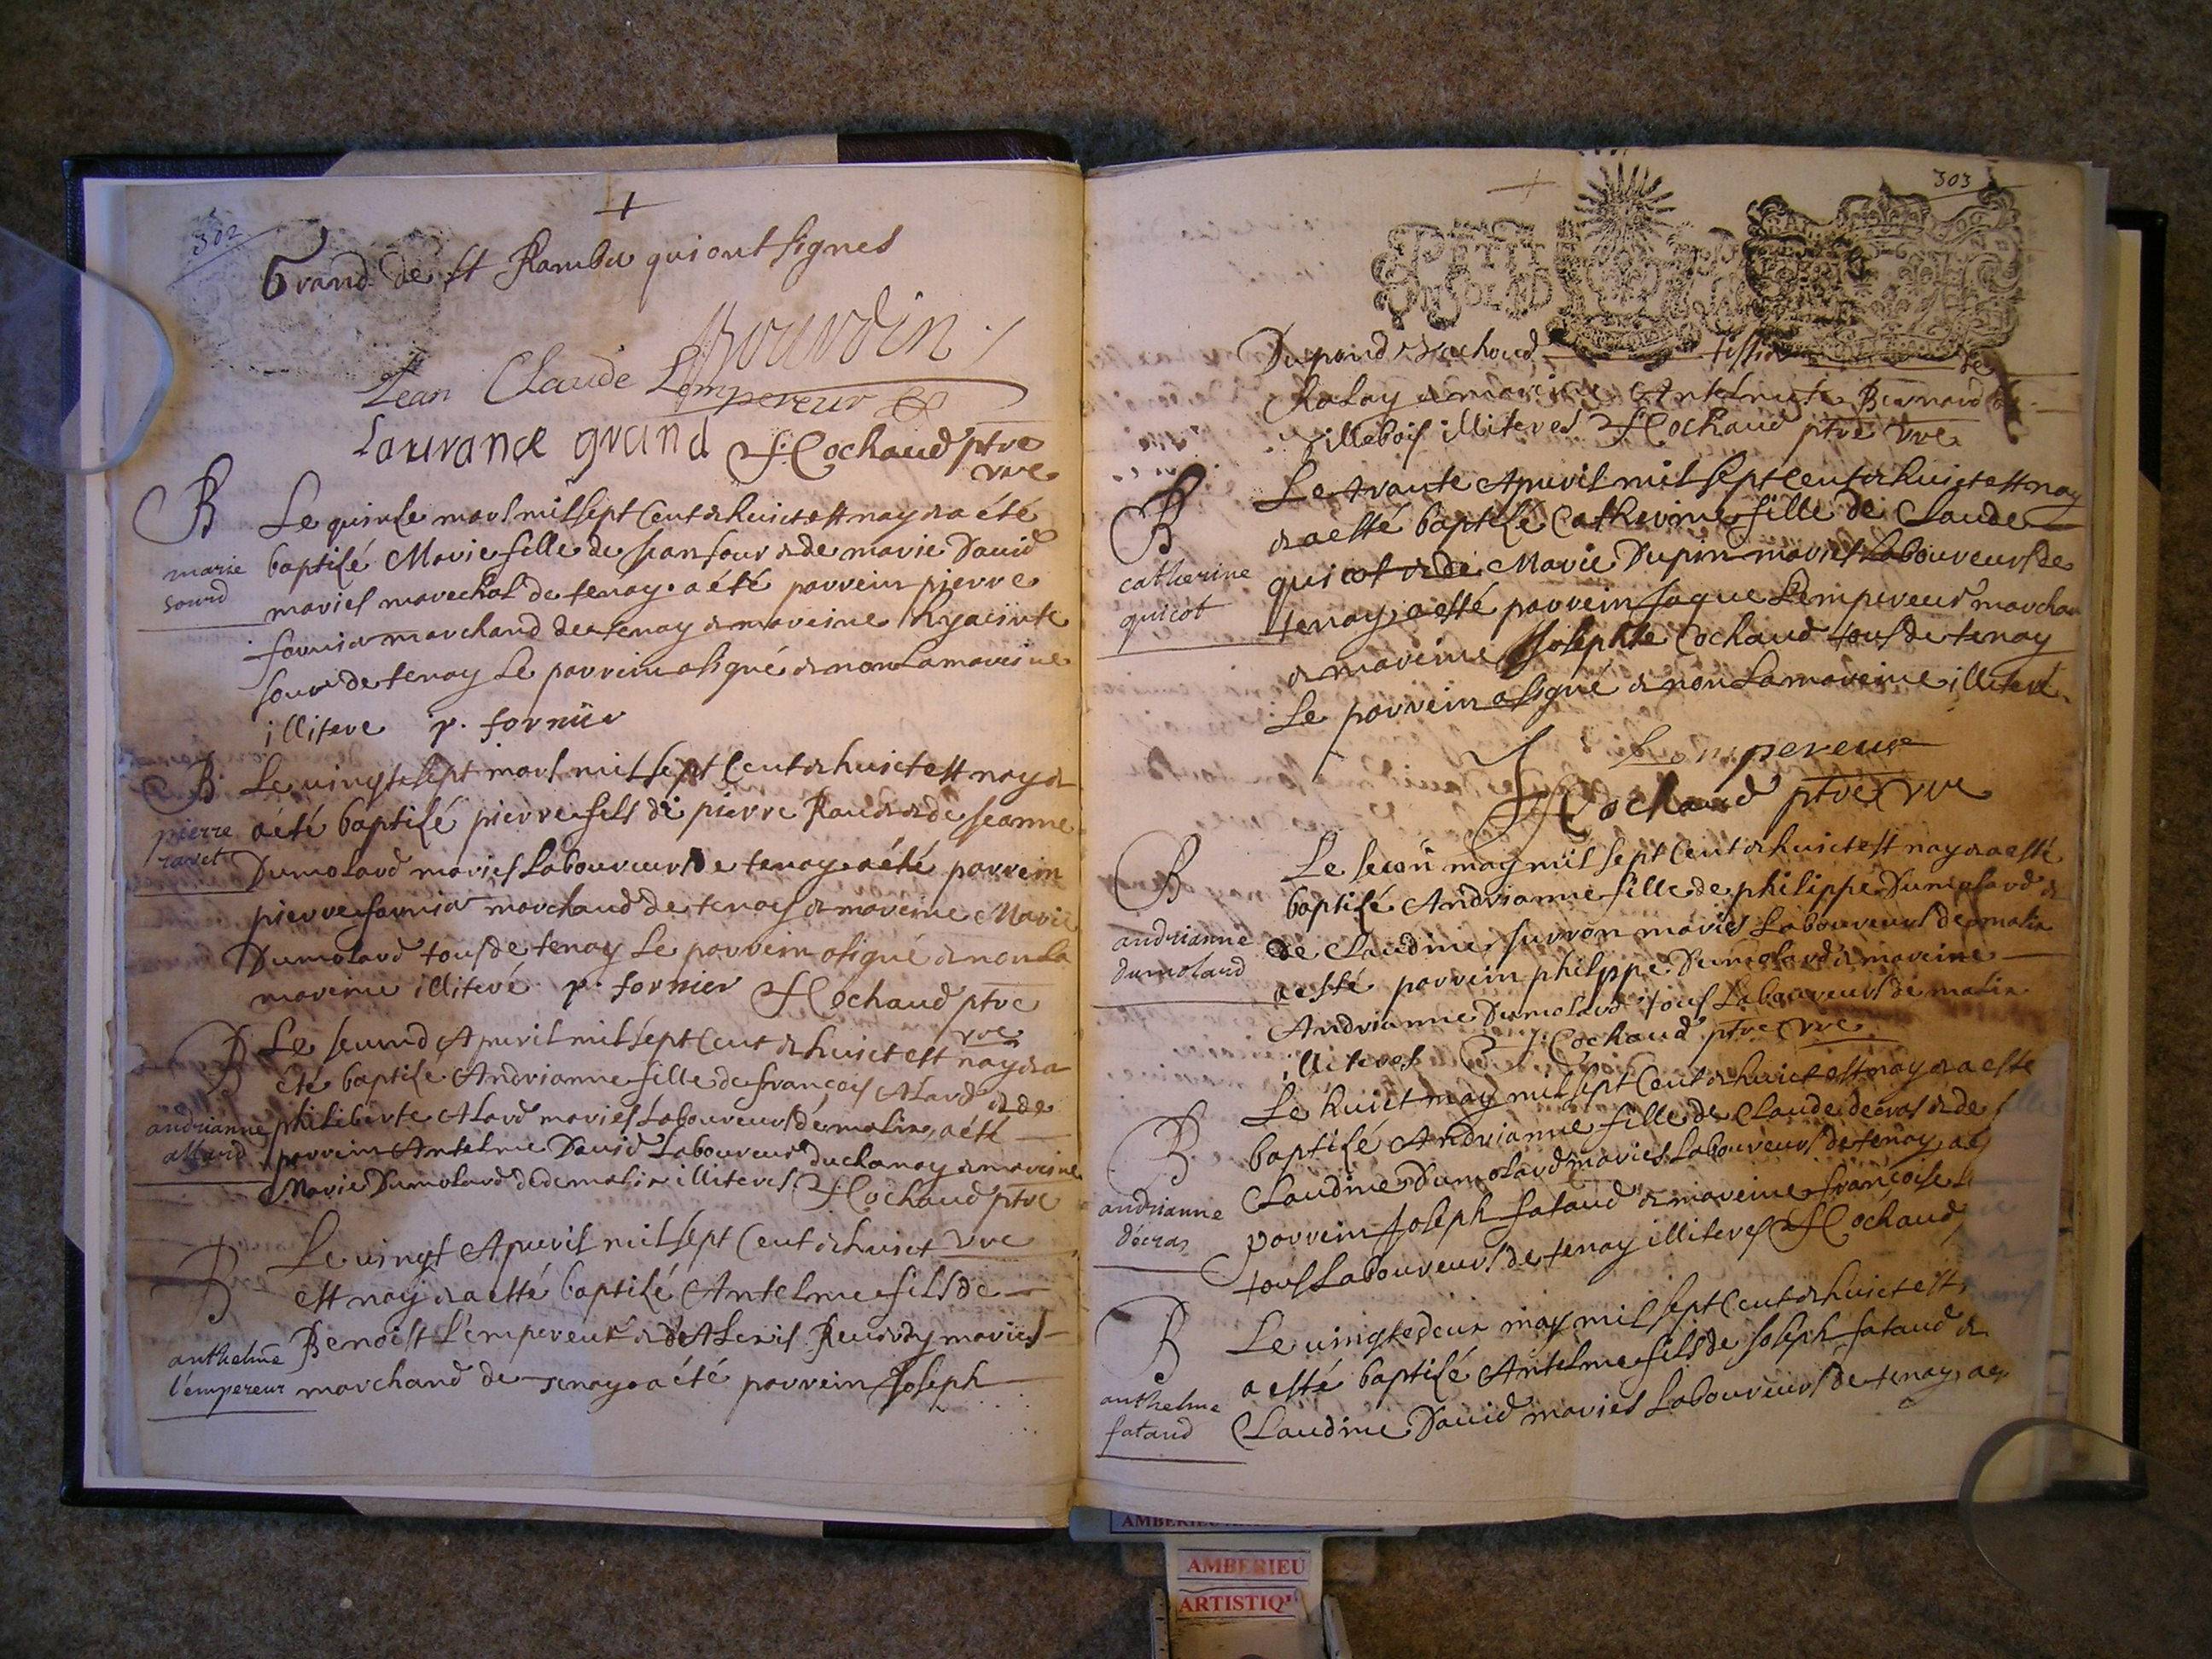 302
Grand de st Rambu qui ont signes
Bourdin
Jean Claude Lempereur
Laurance grand J Cochaud ptre
vre
B
marie
sourd
Le quinse mars mil sept cent & huict est nay & a été
baptisé Marie fille de Jean sour & de marie David
maries marechal de tenay. a été parrein pierre
fornier marchand de tenay & mareine Hyacinte
sour de tenay Le parrein a signé & non La mareine
illitere p. fornier
B
pierre
ravet
Le vingt sept mars mil sept cent & huict est nay &
a été baptisé pierre fils de pierre Ravet & de Jeanne
Dumolard maries Laboureurs de tenay a été parrein
pierre fornier marchand de tenay & mareine Marie
Dumolard tous de tenay Le parrein a signé & non La
mareine illiteré p. fornier J Cochaud ptre
vre
B
andrianne
allard
Le second Apvril mil sept cent & huict est nay & a
été baptisé Andrianne fille de françois Alard & de
philiberte Alard maries Laboureurs de malix, a été
parrein Antelme David Laboureur du chanay & mareine
Marie Dumolard de malix illiteres J Cochaud ptre
vre
B
anthelme
l'empereur
Le vingt Apvril mil sept cent & huict
est nay & a esté baptisé Antelme fils de
Benoist L'empereur & d'Alexis maries
marchand de Tenay a été parrein Joseph
303
PETIT
Dupond & tissier de
& mareine Antelmete Bernard de
villebois illiteres J Cochaud ptre vre
B
catherine
quicot
Le trante Apvril mil sept cent & huict est nay
& a esté baptisé Catherine fille de Claude
quicot & de Marie Dupin maries Laboureurs de
tenay, a esté parrein Jaque Lempereur marchan
& mareine Josephte Cochaud tous de tenay
Le parrein a signé & non La mareine illiteré
J Lempereur
J Cochaud ptre vre
B
andrianne
dumolard
Le secon may mil sept cent & huict est nay & a esté
baptisé Andrianne fille de philippe Dumolard &
de Claudine Jurron maries Laboureurs de malix
a esté parrein philippe Dumolard & mareine
Andrianne Dumolard tous Laboureurs de malix
illiteres J Cochaud ptre vre
B
andrianne
décras
Le huict may mil sept cent & huict est nay & a esté
baptisé Andrianne fille de Claude decras & de
Claudine Dumolard maries Laboureurs de tenay, a é
parrein Joseph fataud & mareine françoise
tous Laboureurs de tenay illiteres J Cochaud
B
anthelme
fataud
Le vingt & deux may mil sept cent & huict est
a esté baptisé Antelme fils de Joseph fataud &
Claudine David maries Laboureurs de tenay, a
AMBERIEU
AMBERIEU
ARTISTIQ